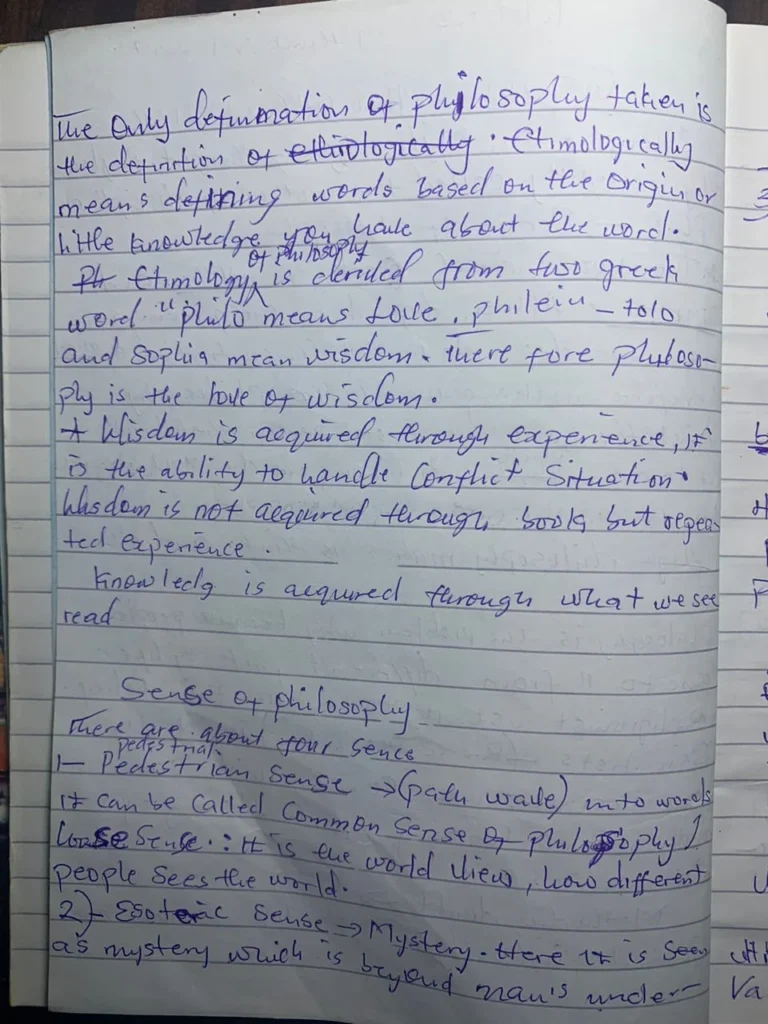 The Only definnation of philosophy taken is
the definition of ethiologically. Etimologically
means defining words based on the origin or
little knowledge you have about the word.
Ph Etimology of philosophy is derided from two greek
word "philo means Love, philein - tolo
and sophia mean wisdom. There fore philoso-
phy is the love of wisdom.
* Wisdom is acquired through experience, it
is the ability to handle Conflict Situation.
Wisdom is not acquired through book but repea-
ted experience.
Knowledg is acquired through what we see
read
Sense of philosophy
There are about four sence
pedestrial
1- Pedestrian Sense → (path wale) into words
it can be called Common Sense of philosophy /
Loose Sense: It is the world view, how different
people sees the world.
2)- Esoteric Sense → Mystery. Here it is seen
as mystery which is beyond man's under-